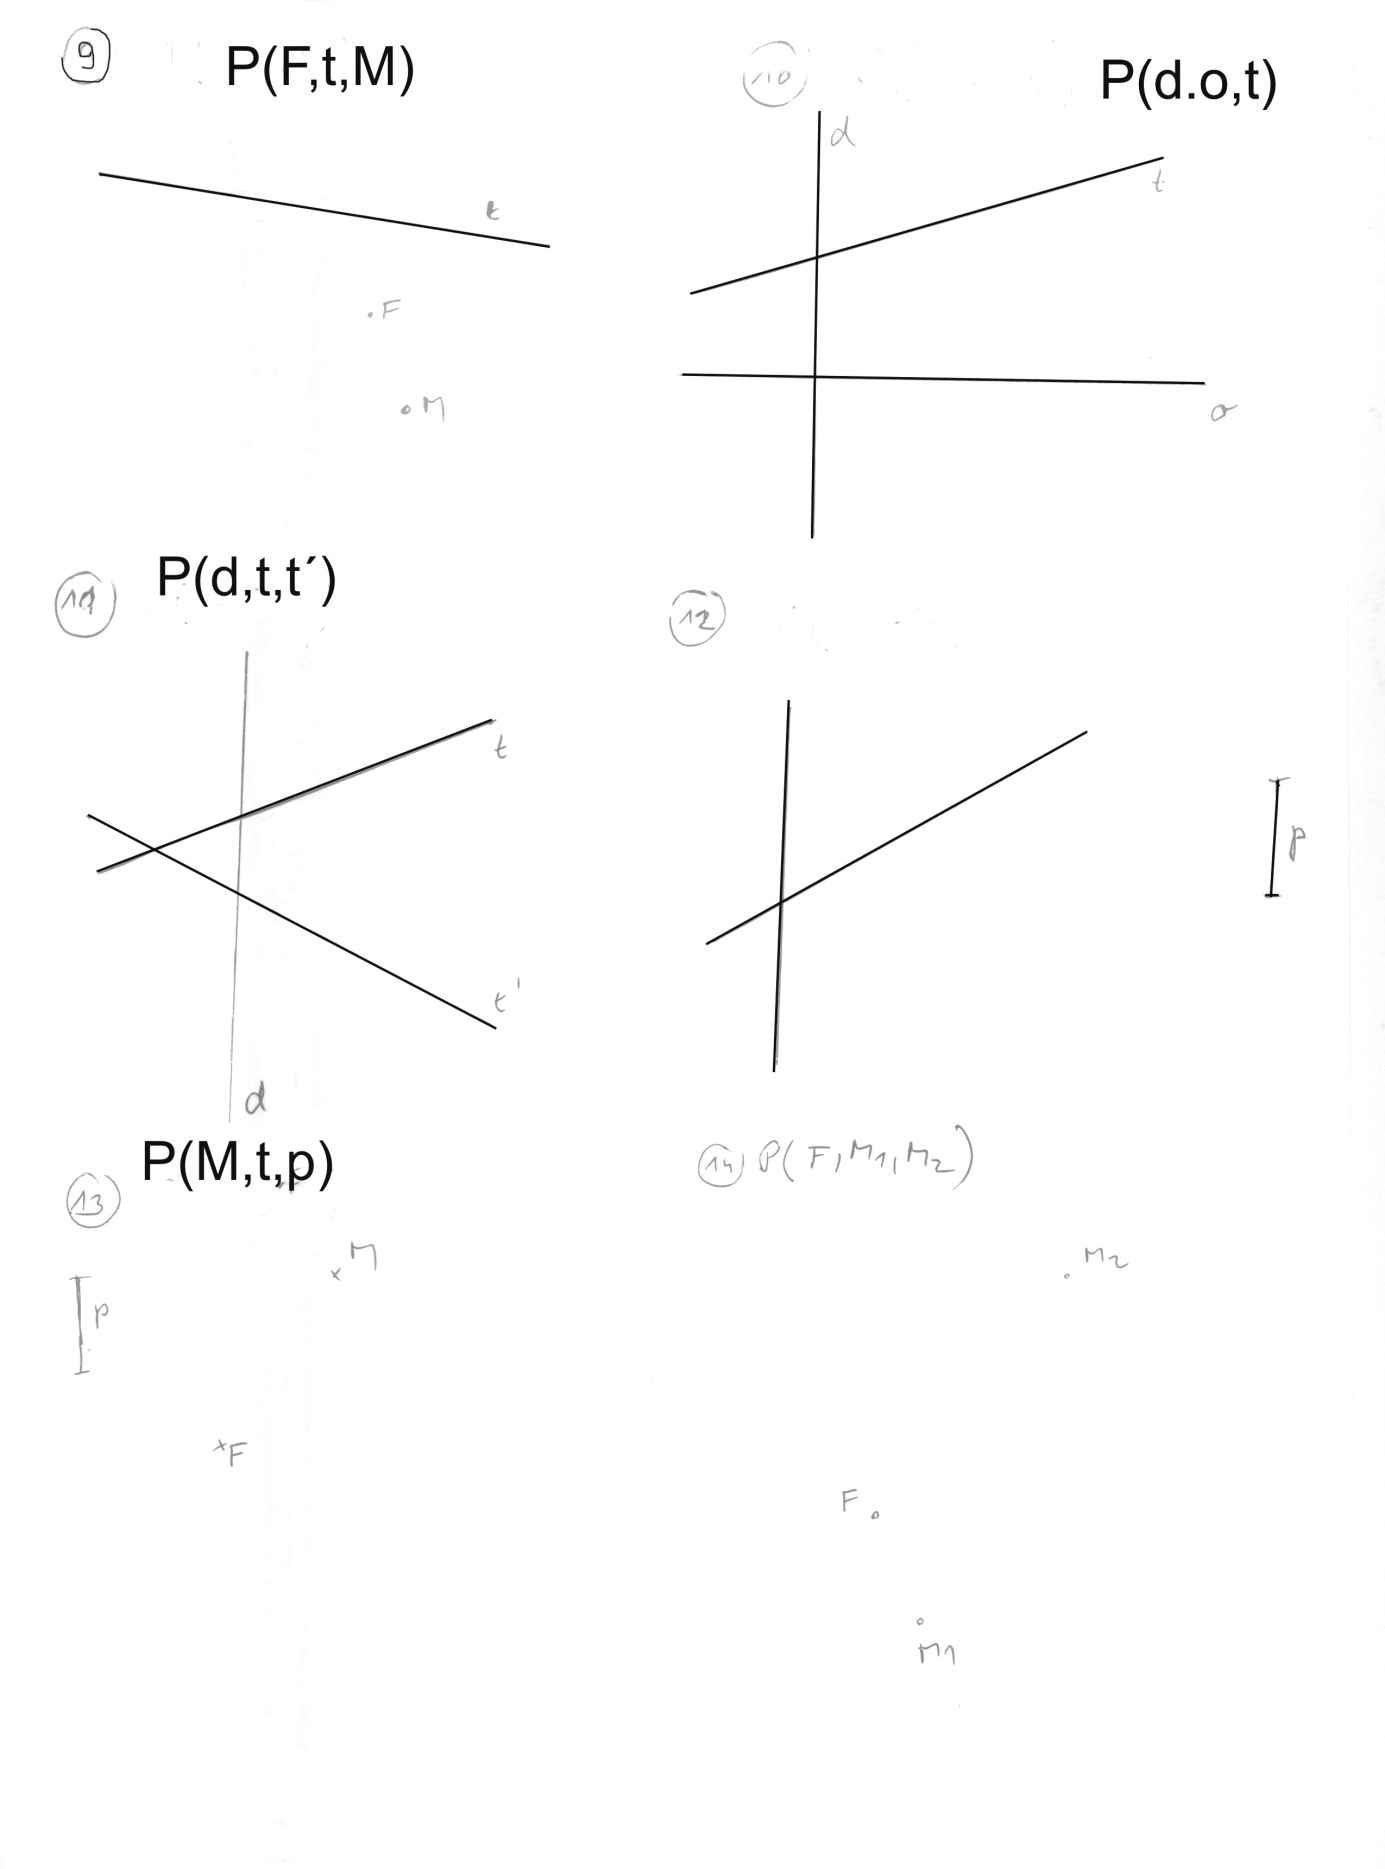 9 P(F,t,M)
t
F
M
10 P(d.o,t)
d
t
o
P(d,t,t´)
11
t
t'
d
12
p
P(M,t,p)
13
M
p
F
14 P(F,M1,M2)
M2
F
M1